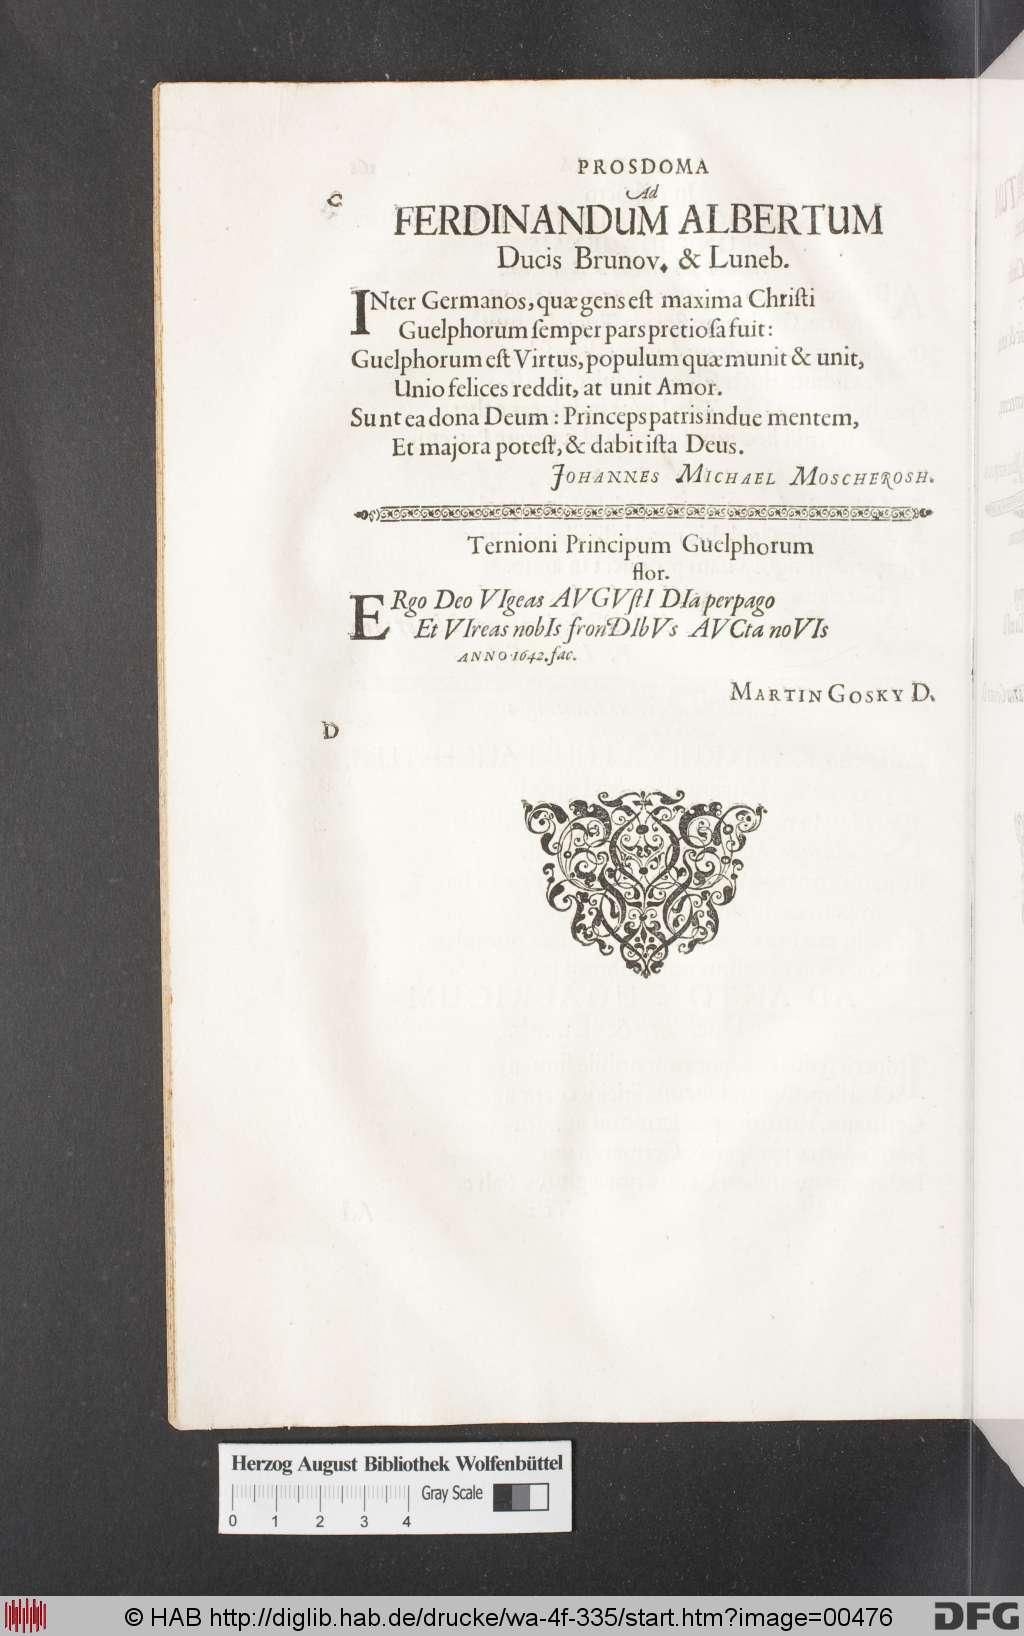 PROSDOMA
Ad
C
FERDINANDUM ALBERTUM
Ducis Brunov. & Luneb.
INter Germanos, quæ gens eſt maxima Chriſti
Guelphorum ſemper pars pretioſa fuit:
Guelphorum eſt Virtus, populum quæ munit & unit,
Unio felices reddit, at unit Amor.
Sunt ea dona Deum: Princeps patris indue mentem,
Et majora poteſt, & dabit iſta Deus.
JOHANNES MICHAEL MOSCHEROSH.
Ternioni Principum Guelphorum
flor.
ERgo Deo VIgeas AVGVſtI DIa perpago
Et VIreas nobIs fronDIbVs AVCta noVIs
ANNO 1642. fac.
MARTIN GOSKY D.
D
Herzog August Bibliothek Wolfenbüttel
Gray Scale
0 1 2 3 4
© HAB http://diglib.hab.de/drucke/wa-4f-335/start.htm?image=00476
DFG